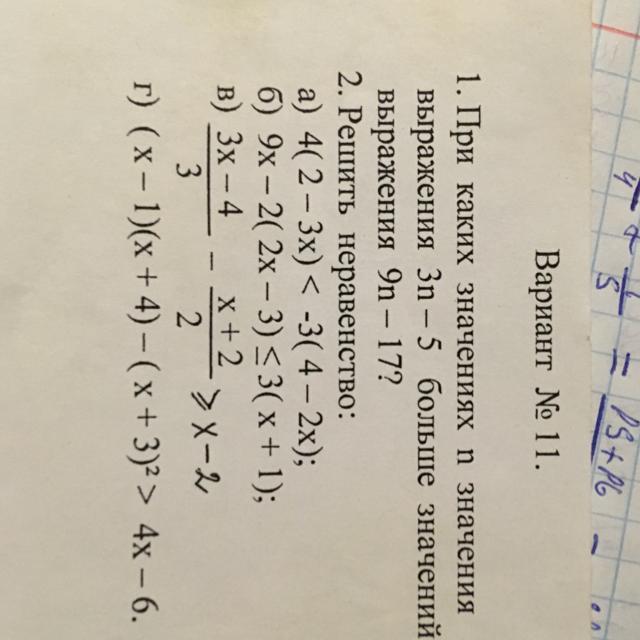 Вариант № 11.
1. При каких значениях n значения
выражения 3n – 5 больше значений
выражения 9n – 17?
2. Решить неравенство:
а) 4( 2 – 3x) < -3( 4 – 2x);
б) 9x – 2( 2x – 3) ≤ 3( x + 1);
в) \frac{3x – 4}{3} – \frac{x + 2}{2} ⩾ x – 2
г) ( x – 1)(x + 4) – ( x + 3)² > 4x – 6.